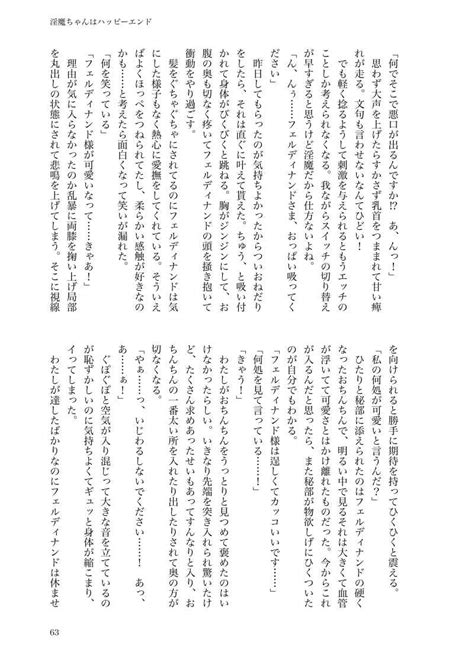 淫魔ちゃんはハッピーエンド
「何でそこで悪口が出るんですか!? あ、んっ！」
　思わず大声を上げたらすかさず乳首をつままれて甘い痺
れが走る。文句も言わせないなんてひどい！
　でも軽く捻るようして刺激を与えられるともうエッチの
ことしか考えられなくなる。我ながらスイッチの切り替え
が早すぎると思うけど淫魔だから仕方ないよね。
「ん、んぅ……フェルディナンドさま、おっぱい吸ってく
ださい」
　昨日してもらったのが気持ちよかったからついおねだり
をしたら、それは直ぐに叶えて貰えた。ちゅう、と吸い付
かれて身体がびくびくと跳ねる。胸がジンジンにして、お
腹の奥も切なく疼いてフェルディナンドの頭を掻き抱いて
衝動をやり過ごす。
　髪をぐちゃぐちゃにされてるのにフェルディナンドは気
にした様子もなく熱心に愛撫をしてくれている。そういえ
ばよくほっぺをつねられてたし、柔らかい感触が好きなの
かも……と考えたら面白くなって笑いが漏れた。
「何を笑っている」
「フェルディナンド様が可愛いなって……きゃあ！」
　理由が気に入らなかったのか乱暴に両膝を掬い上げ局部
を丸出しの状態にされて悲鳴を上げてしまう。そこに視線
を向けられると勝手に期待を持ってひくひくと震える。
「私の何処が可愛いと言うんだ？」
　ひたりと秘部に添えられたのはフェルディナンドの硬く
なったおちんちんで、明るい中で見るそれは大きくて血管
が浮いてて可愛さとはかけ離れたものだった。今からこれ
が入るんだと思ったら、また秘部が物欲しげにひくついた
のが自分でもわかる。
「フェルディナンド様は逞しくてカッコいいです……」
「何処を見て言っている……！」
「きゃう！」
　わたしがおちんちんをうっとりと見つめて褒めたのはい
けなかったらしい、いきなり先端を突き入れられ驚いたけ
ど、たくさん求めあったせいもあってすんなりと入り、お
ちんちんの一番太い所を入れたり出したりされて奥の方が
切なくなる。
「やぁ……っ、いじわるしないでください……！　あっ、
あ……ぁ！」
　ぐぽぐぽと空気が入り混じって大きな音を立てているの
が恥ずかしいのに気持ちよくてギュッと身体が縮こまり、
イってしまった。
　わたしが達したばかりなのにフェルディナンドは休ませ
63